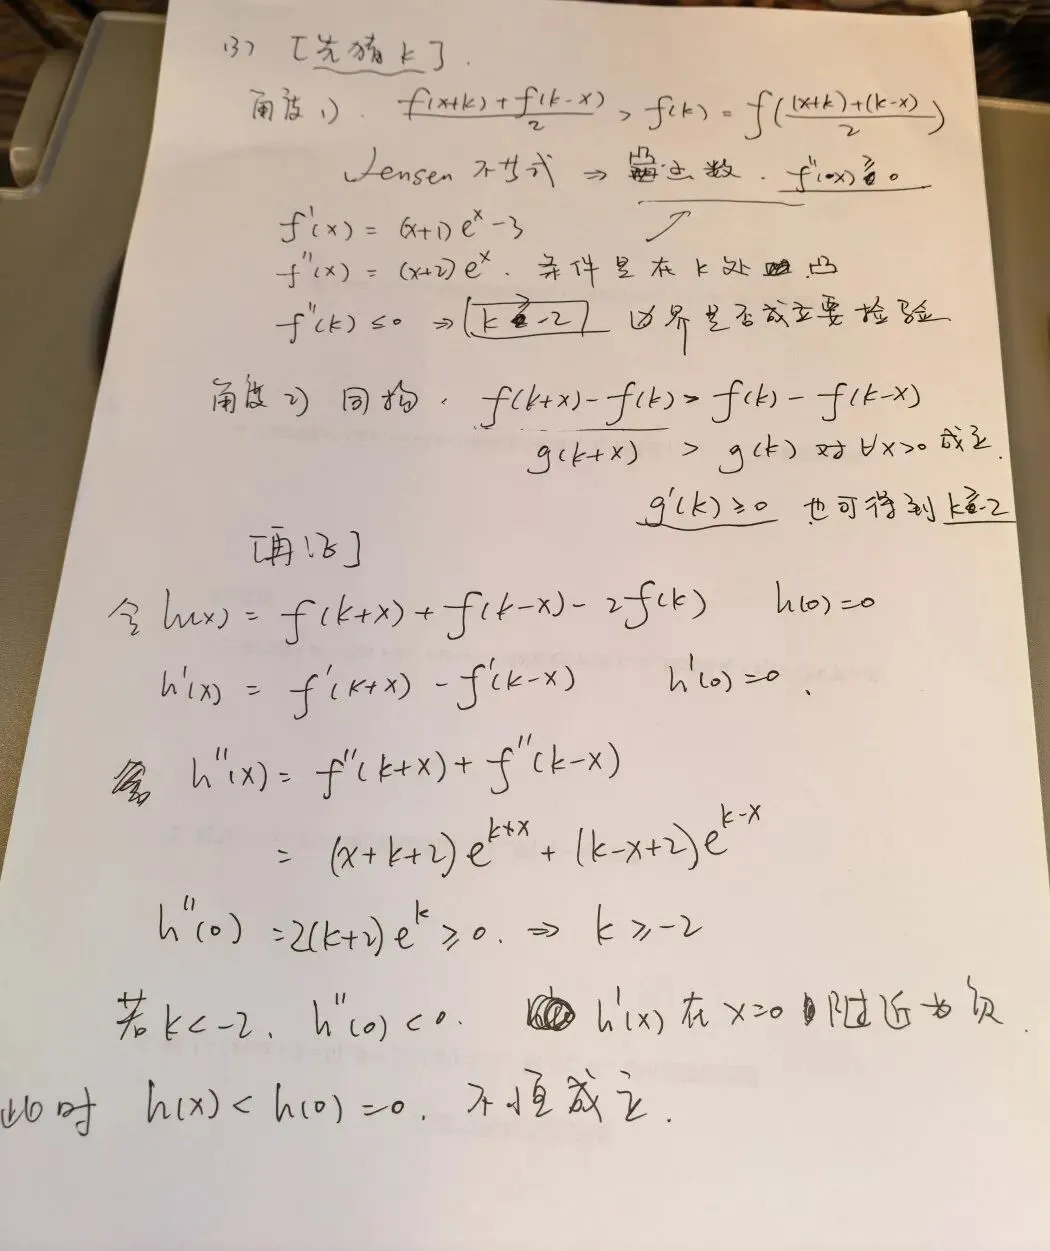 (3) [先猜k].
角度1). \frac{f(x+k)+f(k-x)}{2} > f(k) = f(\frac{(x+k)+(k-x)}{2})
Jensen 不等式 ⇒ 凸函数. f''(x) ≥ 0
f'(x) = (x+1)e^x - 3
f''(x) = (x+2)e^x. 条件是在k处 凸
f''(k) ≤ 0 ⇒ k ≥ -2 边界是否成立要检验
角度2) 同构. f(k+x) - f(k) > f(k) - f(k-x)
g(k+x) > g(k) 对∀x>0 成立.
g'(k) ≥ 0 也可得到 k≥-2
[再证]
令 h(x) = f(k+x) + f(k-x) - 2f(k) h(0)=0
h'(x) = f'(k+x) - f'(k-x) h'(0)=0.
h''(x) = f''(k+x) + f''(k-x)
= (x+k+2)e^{k+x} + (k-x+2)e^{k-x}
h''(0) = 2(k+2)e^k ≥ 0. ⇒ k ≥ -2
若 k < -2, h''(0) < 0. h'(x) 在 x=0 附近为负.
此时 h(x) < h(0) = 0. 不恒成立.